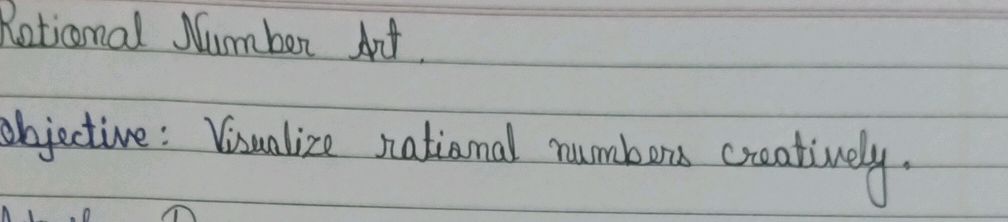 Rational Number Art.
objective: Visualize rational numbers creatively.